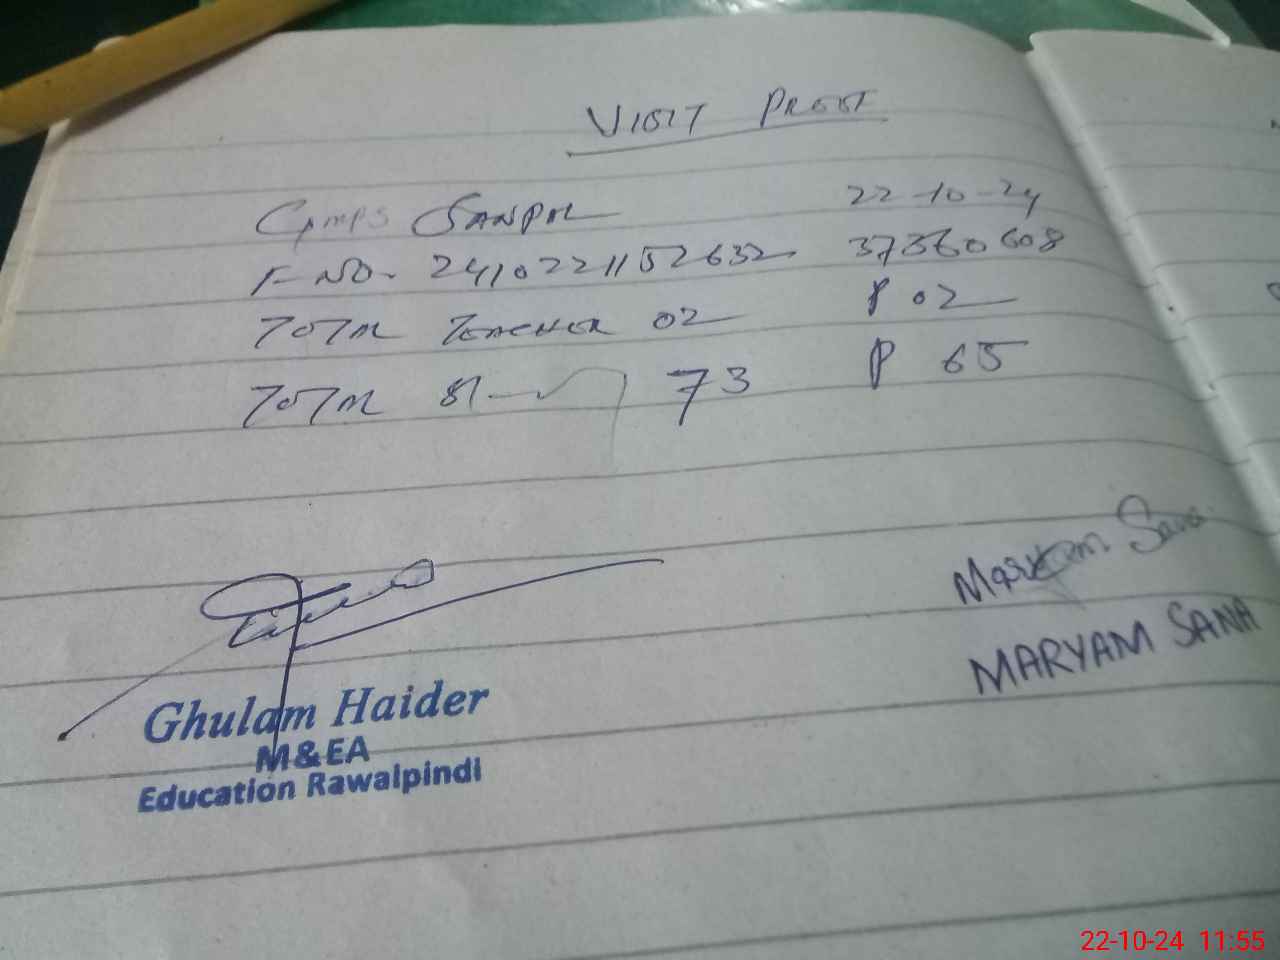 VISIT PROOF
GMPS SANPAL 22-10-24
F-NO. 2410221152632 37360608
TOTAL TEACHER 02 P 02
TOTAL St 73 P 65
Maryam Sana
MARYAM SANA
Ghulam Haider
M&EA
Education Rawalpindi
22-10-24 11:55